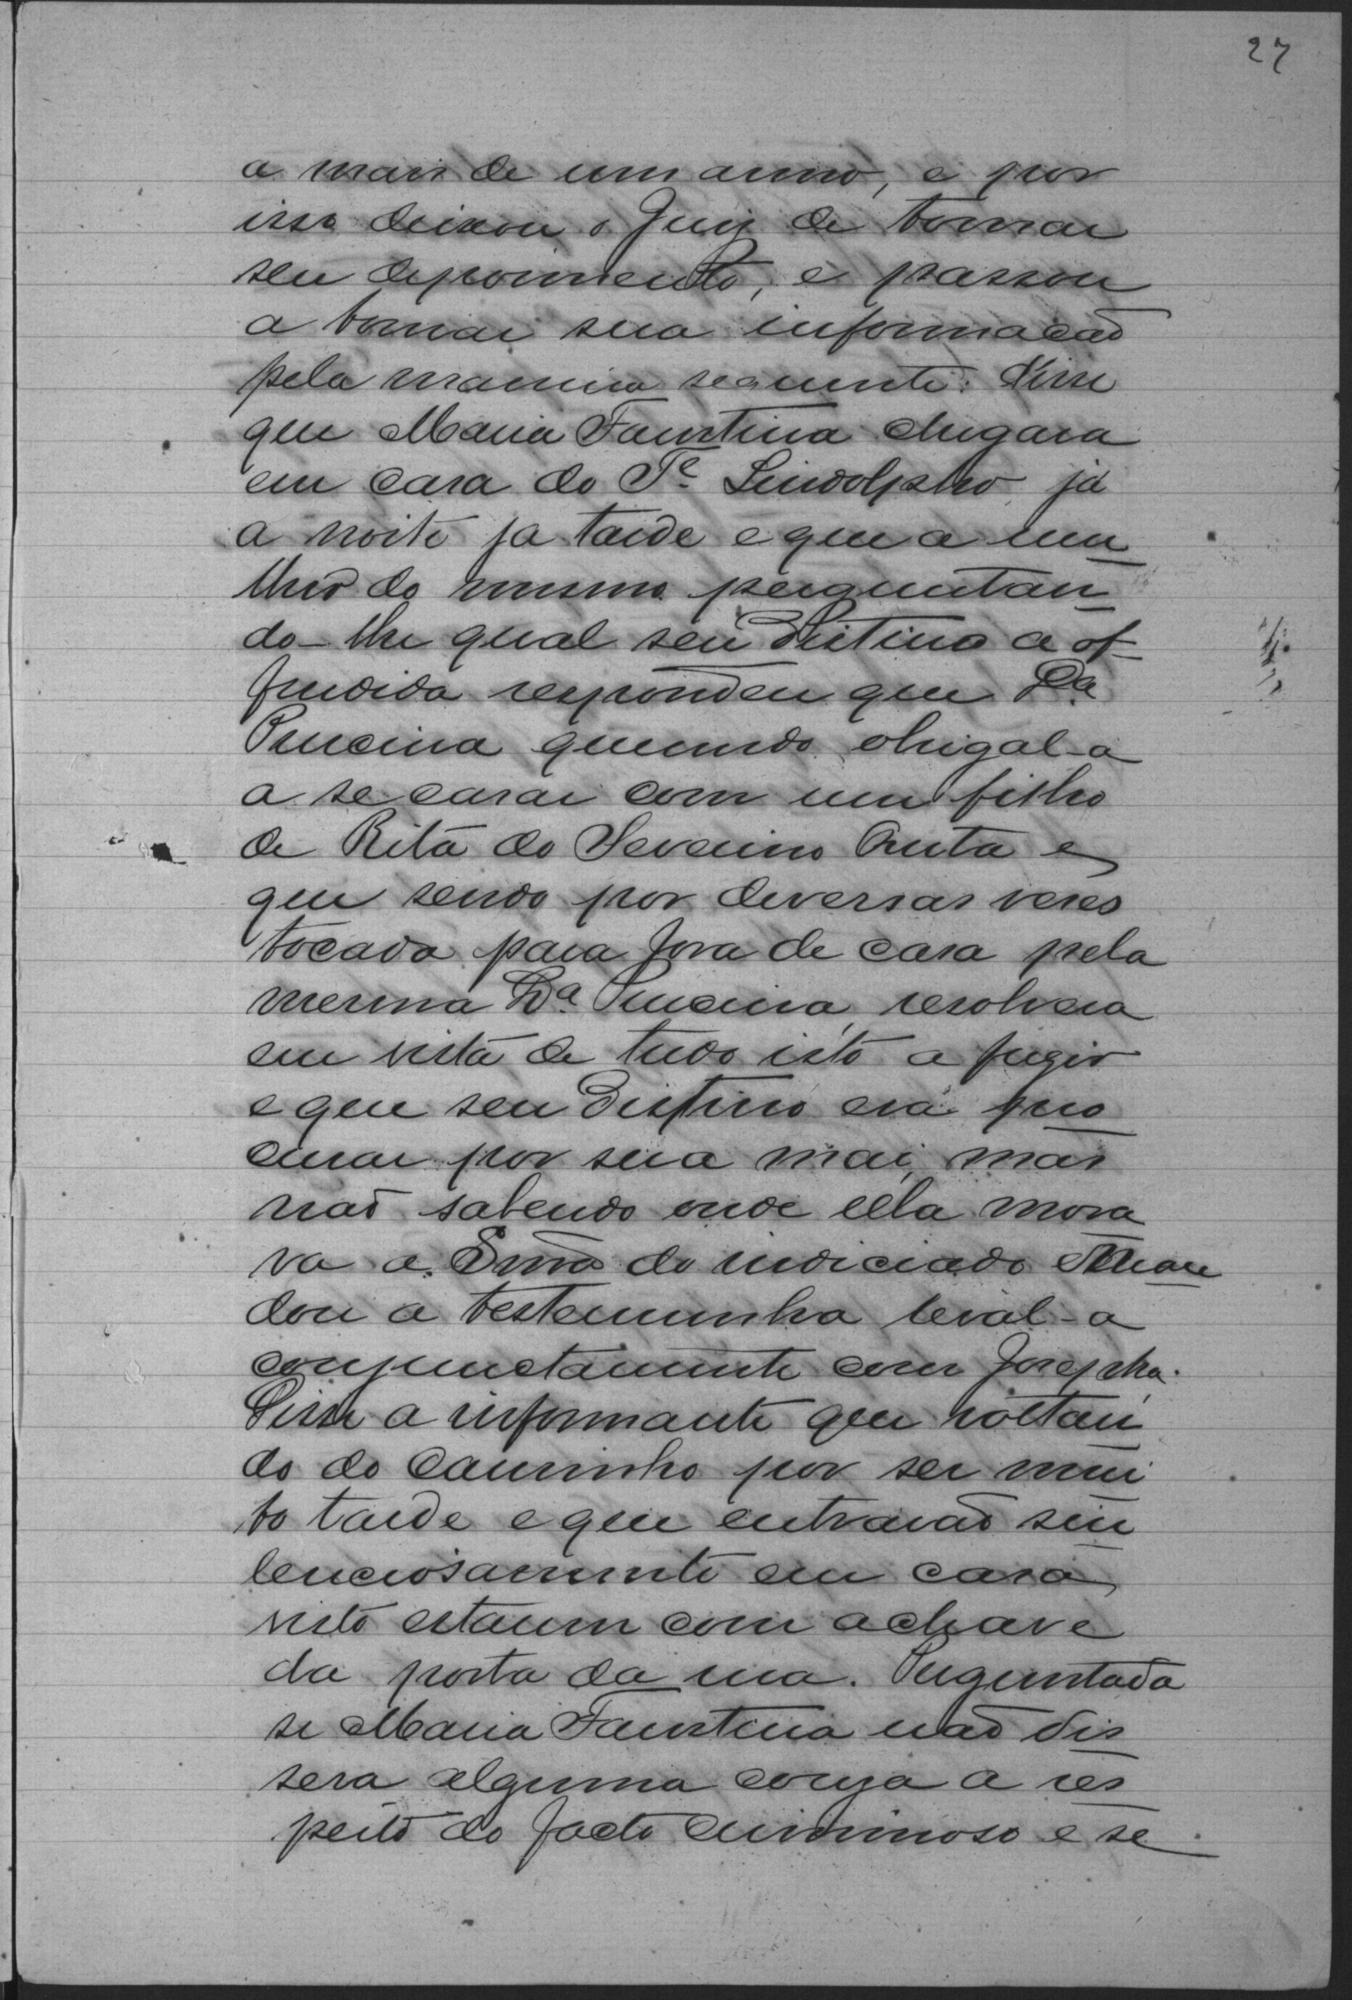 27
a mais de um anno, e por
isso deixou o Juiz de tomar
seu depoimento, e passou
a tomar sua informacão
pela maneira seguinte: Disse
que Maria Faustina chegara
em casa do Te Lindolpho já
a noite ja tarde e que a mu
lher do mesmo perguntan
do-lhe qual seu destino a of
fendida respondeu que Da
querendo obrigal-a
a se casar com um filho
de Rita do Severino Anta e
que sendo por diversas veses
tocada para fora de casa pela
mesma Da resolvera
em vista de tudo isto a fugir
e que seu destino era pro
curar por sua mai, mas
não sabendo onde ella mora
va a Snra do indiciado man
dou a testemunha leval-a
conjunctamente com Josepha.
Disse a informante que voltan
do do caminho por ser mui
to tarde e que entrarão sin
lenciosamente em casa,
visto estarem com a chave
da porta da rua. Perguntada
se Maria Faustina não dis
sera alguma couza a res
peito do facto criminoso e se